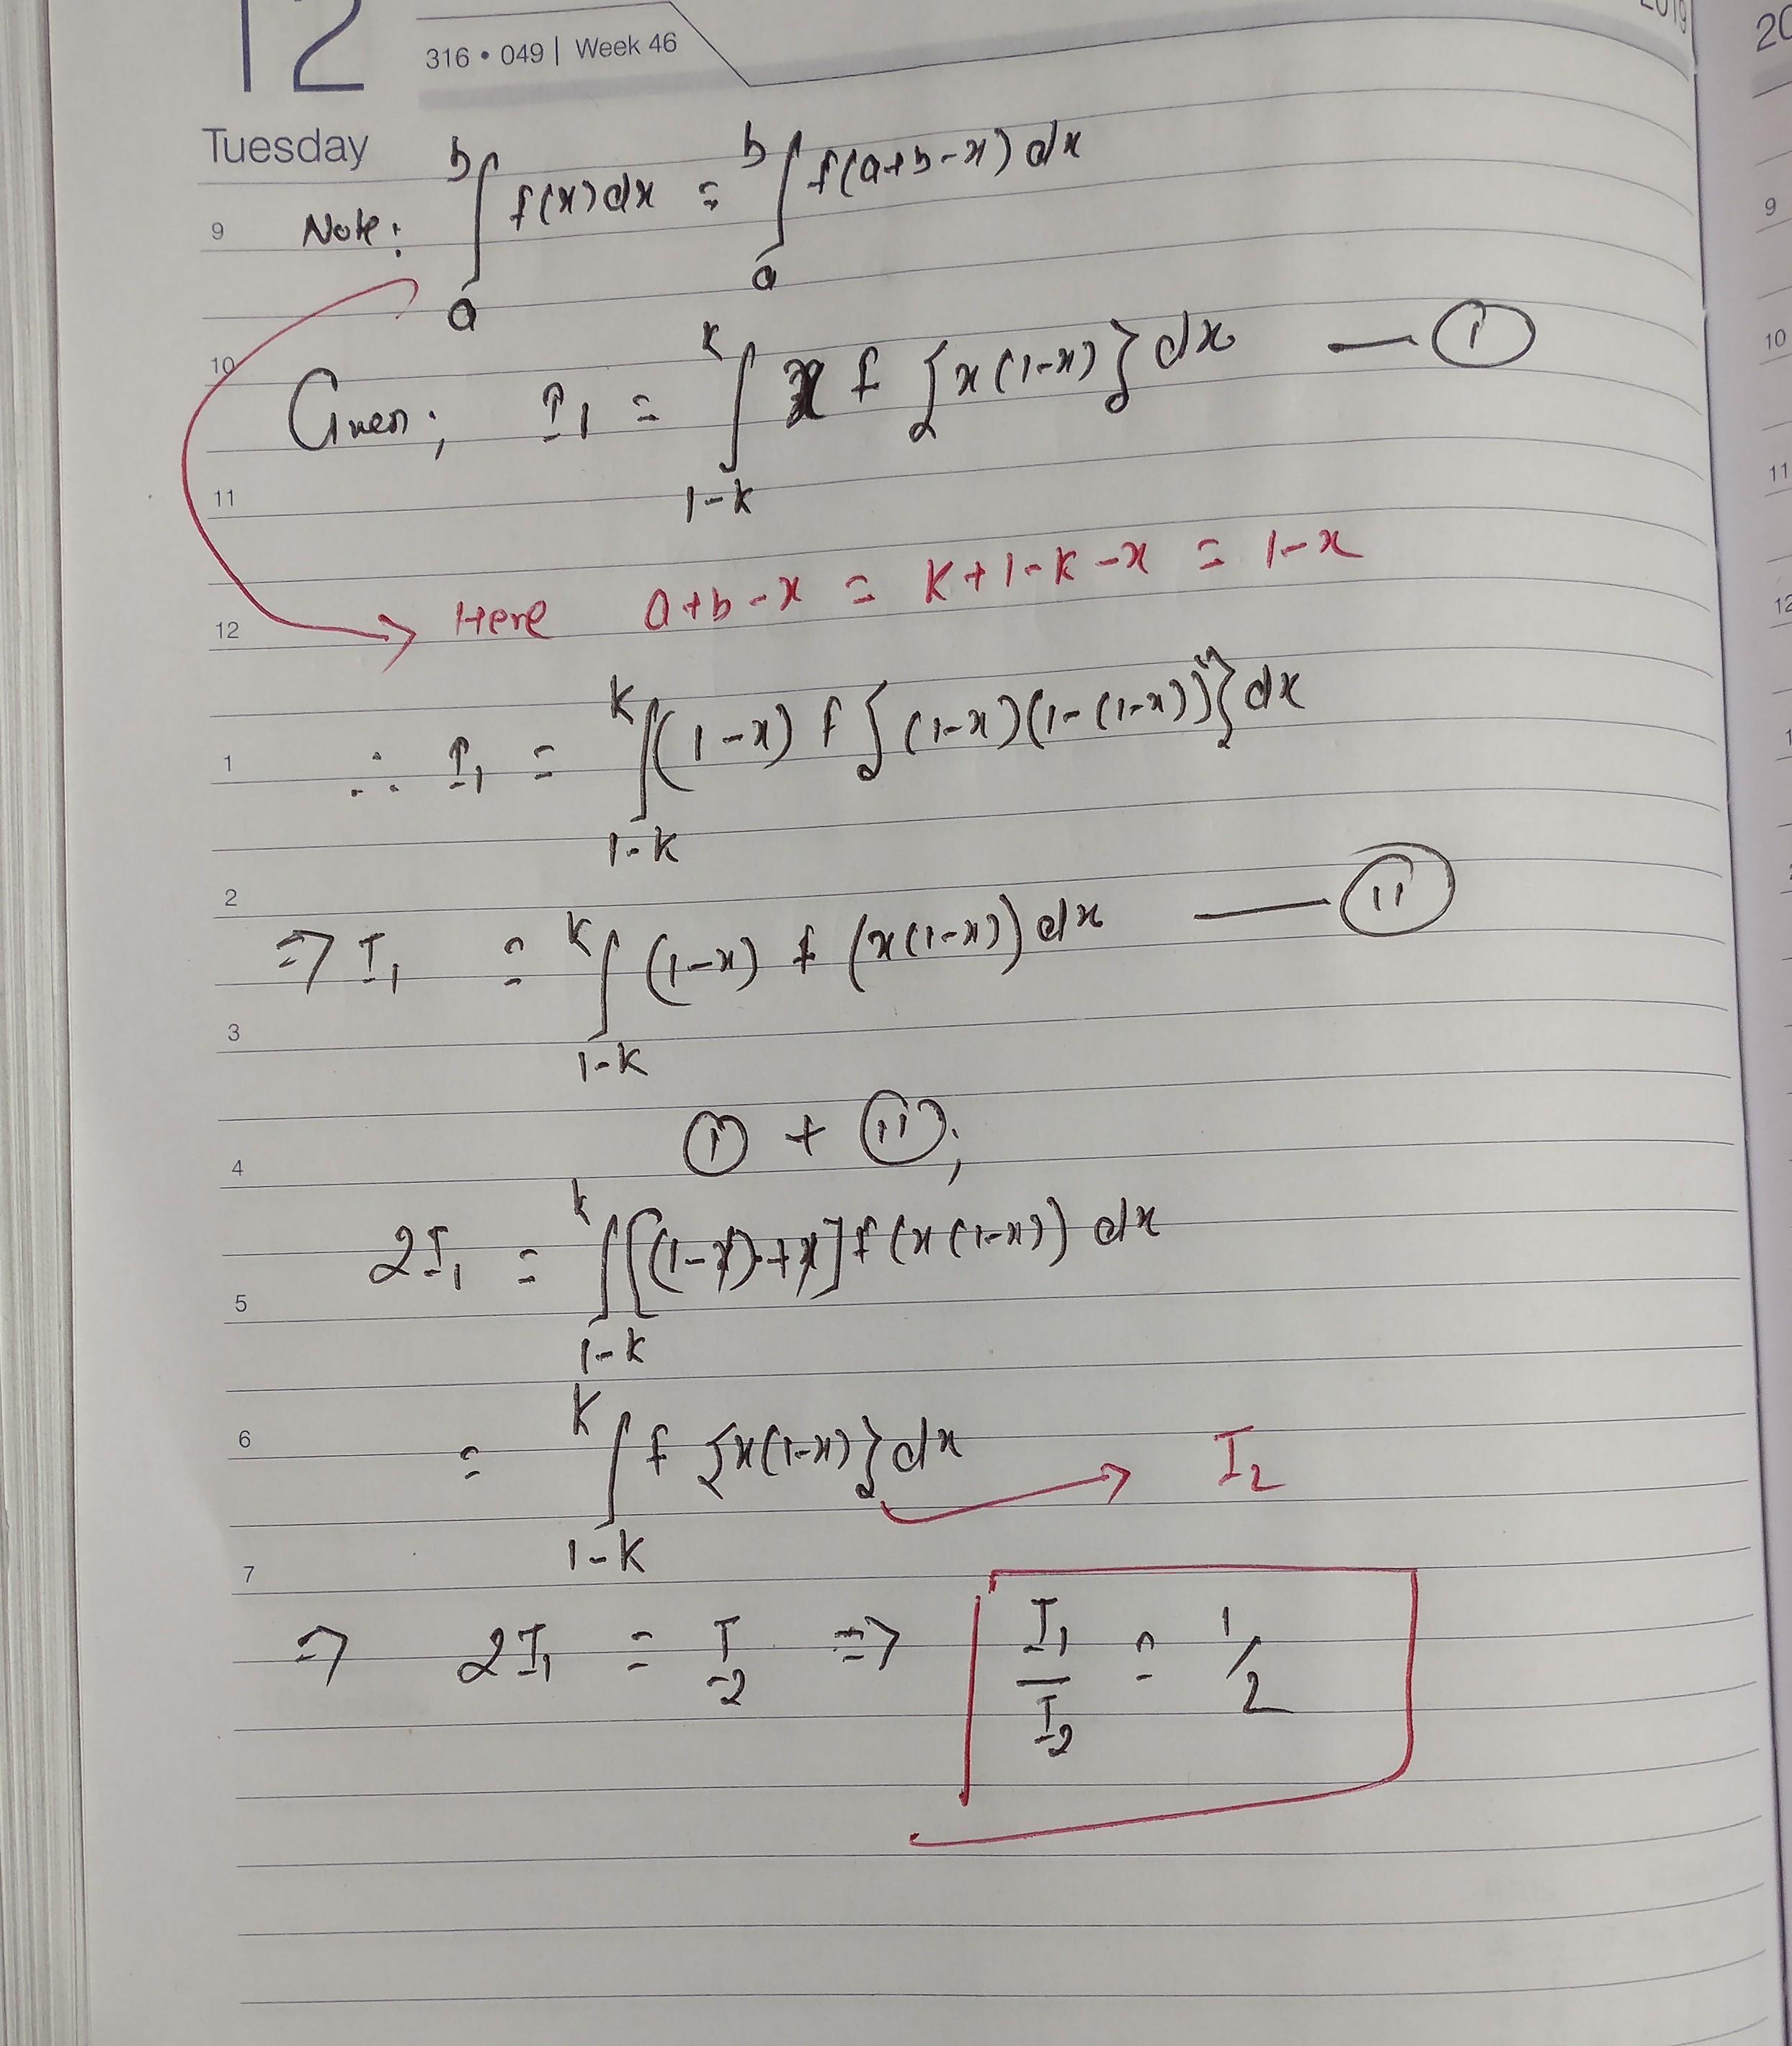 12
316 • 049 | Week 46
2019
20
Tuesday
Note: ∫_a^b f(x)dx = ∫_a^b f(a+b-x) dx
9
10
Given; I₁ = ∫_{1-k}^{k} x f {x(1-x)} dx — (i)
11
12
Here a+b-x = k+1-k-x = 1-x
1
∴ I₁ = ∫_{1-k}^{k} (1-x) f {(1-x)(1-(1-x))} dx
2
⇒ I₁ = ∫_{1-k}^{k} (1-x) f (x(1-x)) dx — (ii)
3
(i) + (ii);
4
2I₁ = ∫_{1-k}^{k} [(1-x)+x] f(x(1-x)) dx
5
6
= ∫_{1-k}^{k} f {x(1-x)} dx → I₂
7
⇒ 2I₁ = I₂ ⇒ I₁/I₂ = 1/2
9
10
11